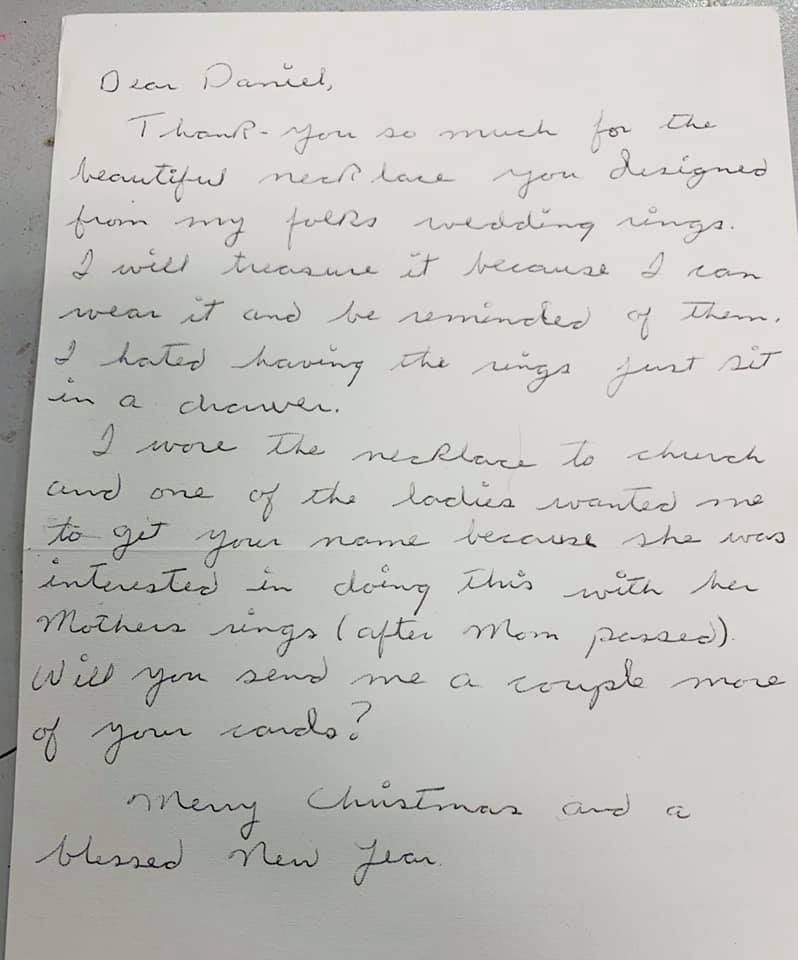 Dear Daniel,
Thank-you so much for the
beautiful necklace you designed
from my folks wedding rings.
I will treasure it because I can
wear it and be reminded of them.
I hated having the rings just sit
in a drawer.
I wore the necklace to church
and one of the ladies wanted me
to get your name because she was
interested in doing this with her
Mothers rings (after Mom passed).
Will you send me a couple more
of your cards?
Merry Christmas and a
blessed New Year.